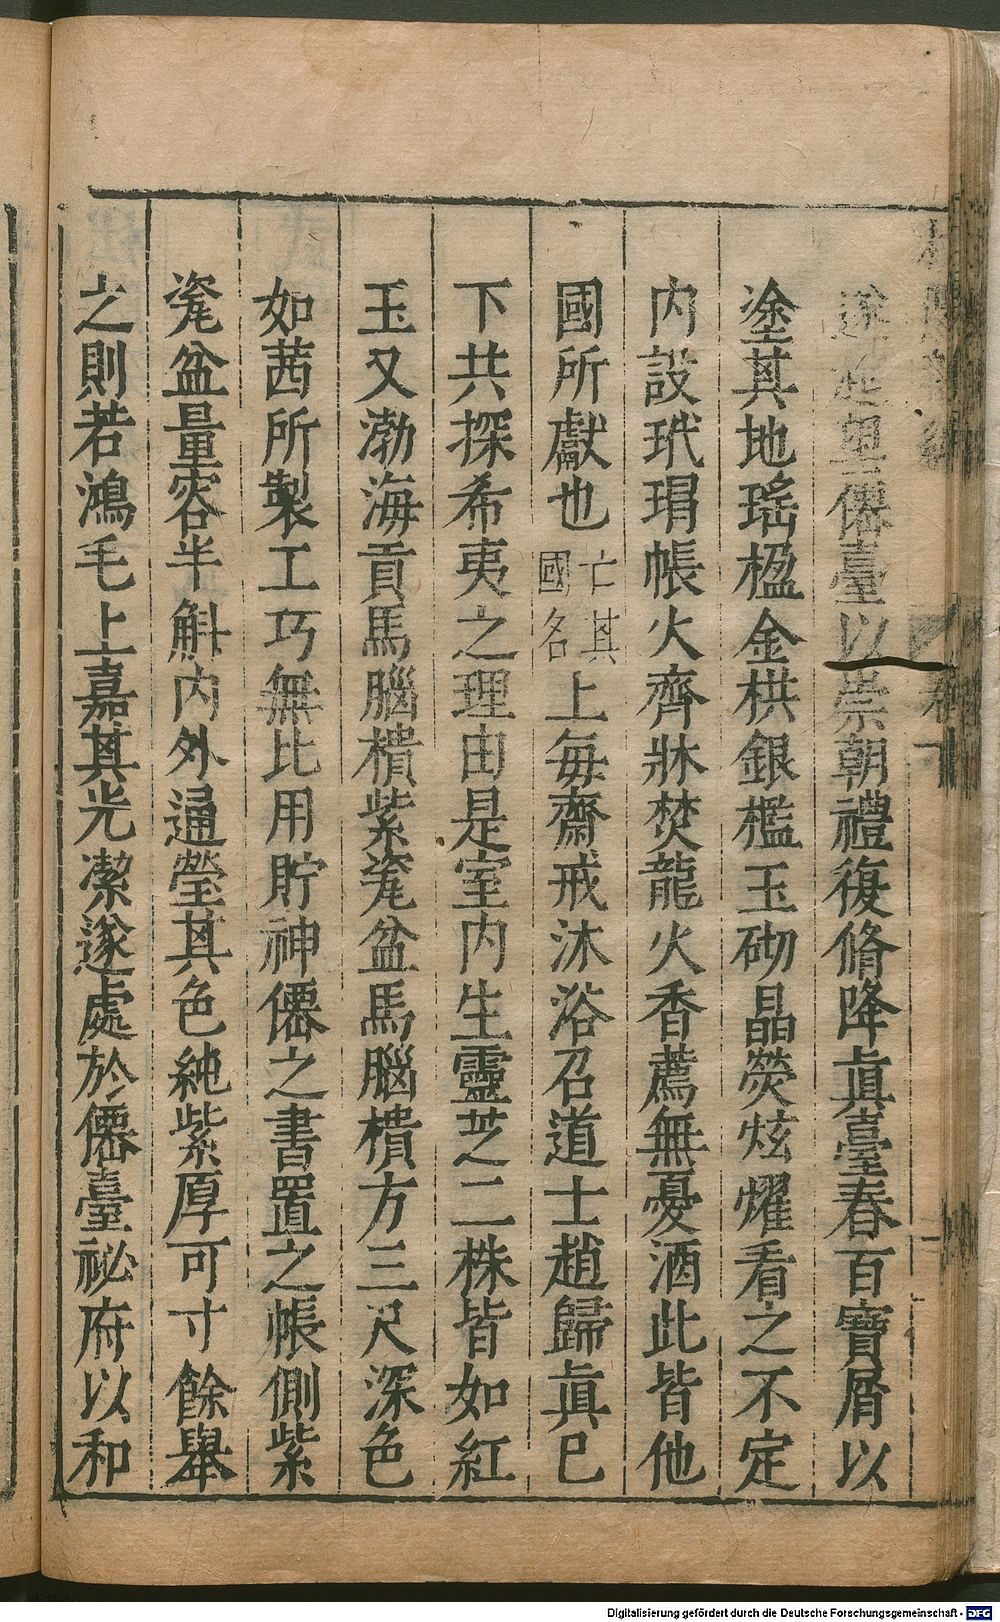 遂起望僊臺以崇朝禮復脩降眞臺舂百寶屑以
塗其地瑤楹金栱銀檻玉砌晶熒炫燿看之不定
內設玳瑁帳火齊牀焚龍火香薦無憂酒此皆他
國所獻也亡其國名上每齋戒沐浴召道士趙歸眞已
下共探希夷之理由是室內生靈芝二株皆如紅
玉又渤海貢馬腦樻紫瓷盆馬腦樻方三尺深色
如茜所製工巧無比用貯神僊之書置之帳側紫
瓷盆量容半斛內外通瑩其色純紫厚可寸餘舉
之則若鴻毛上嘉其光潔遂處於僊臺祕府以和
Digitalisierung gefördert durch die Deutsche Forschungsgemeinschaft - DFG